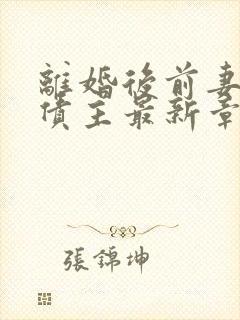 離婚後前妻
債主最新章
張錦坤